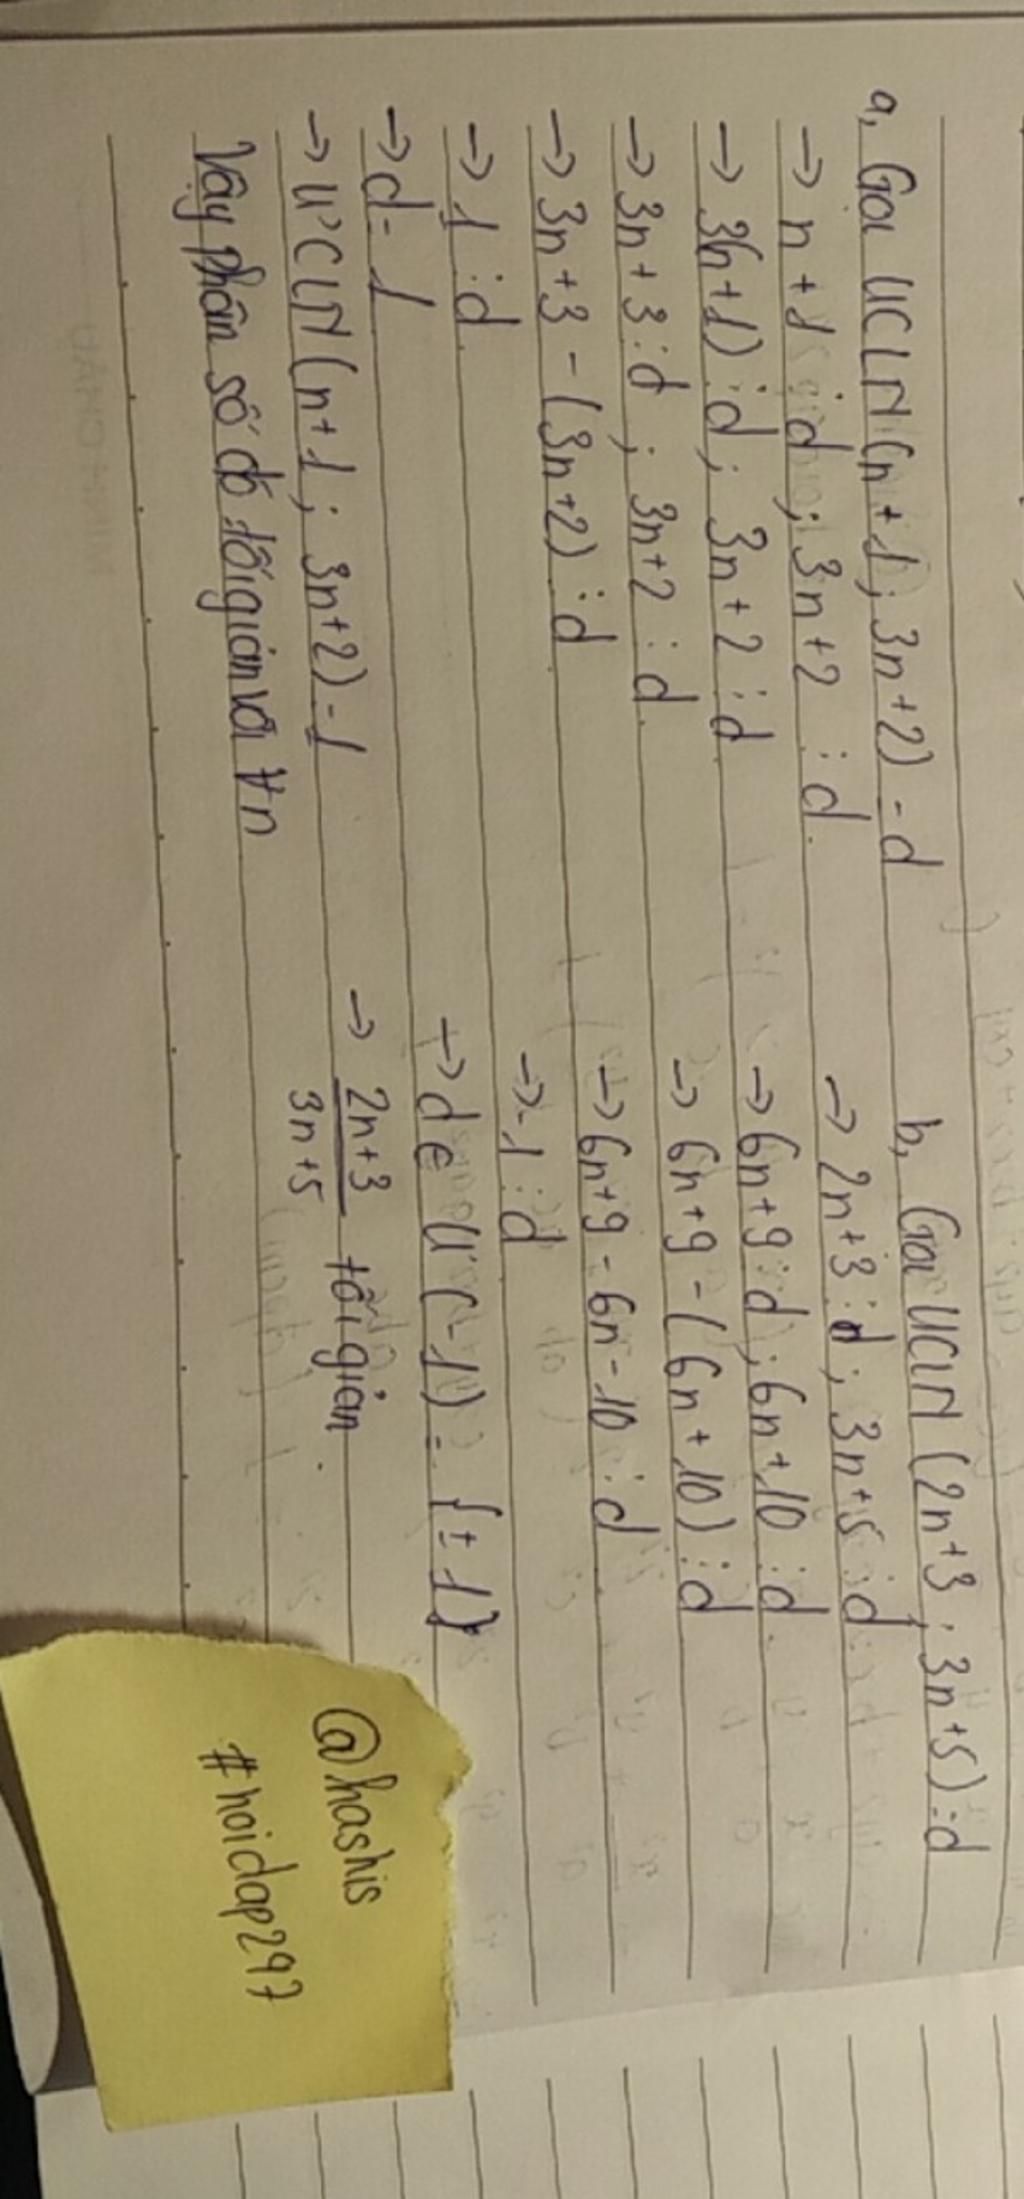 a, Gọi ƯCLN (n+1; 3n+2) = d
→ n+1 ⋮ d; 3n+2 ⋮ d
→ 3(n+1) ⋮ d; 3n+2 ⋮ d
→ 3n+3 ⋮ d; 3n+2 ⋮ d
→ 3n+3 - (3n+2) ⋮ d
→ 1 ⋮ d
→ d = 1
→ ƯCLN (n+1; 3n+2) = 1
Vậy phân số đó tối giản với ∀n
b, Gọi ƯCLN (2n+3; 3n+5) = d
→ 2n+3 ⋮ d; 3n+5 ⋮ d
→ 6n+9 ⋮ d; 6n+10 ⋮ d
→ 6n+9 - (6n+10) ⋮ d
→ 6n+9 - 6n - 10 ⋮ d
→ -1 ⋮ d
→ d ∈ Ư (-1) = {±1}
→ 2n+3 / 3n+5 tối giản
@hashis
#hoidap247